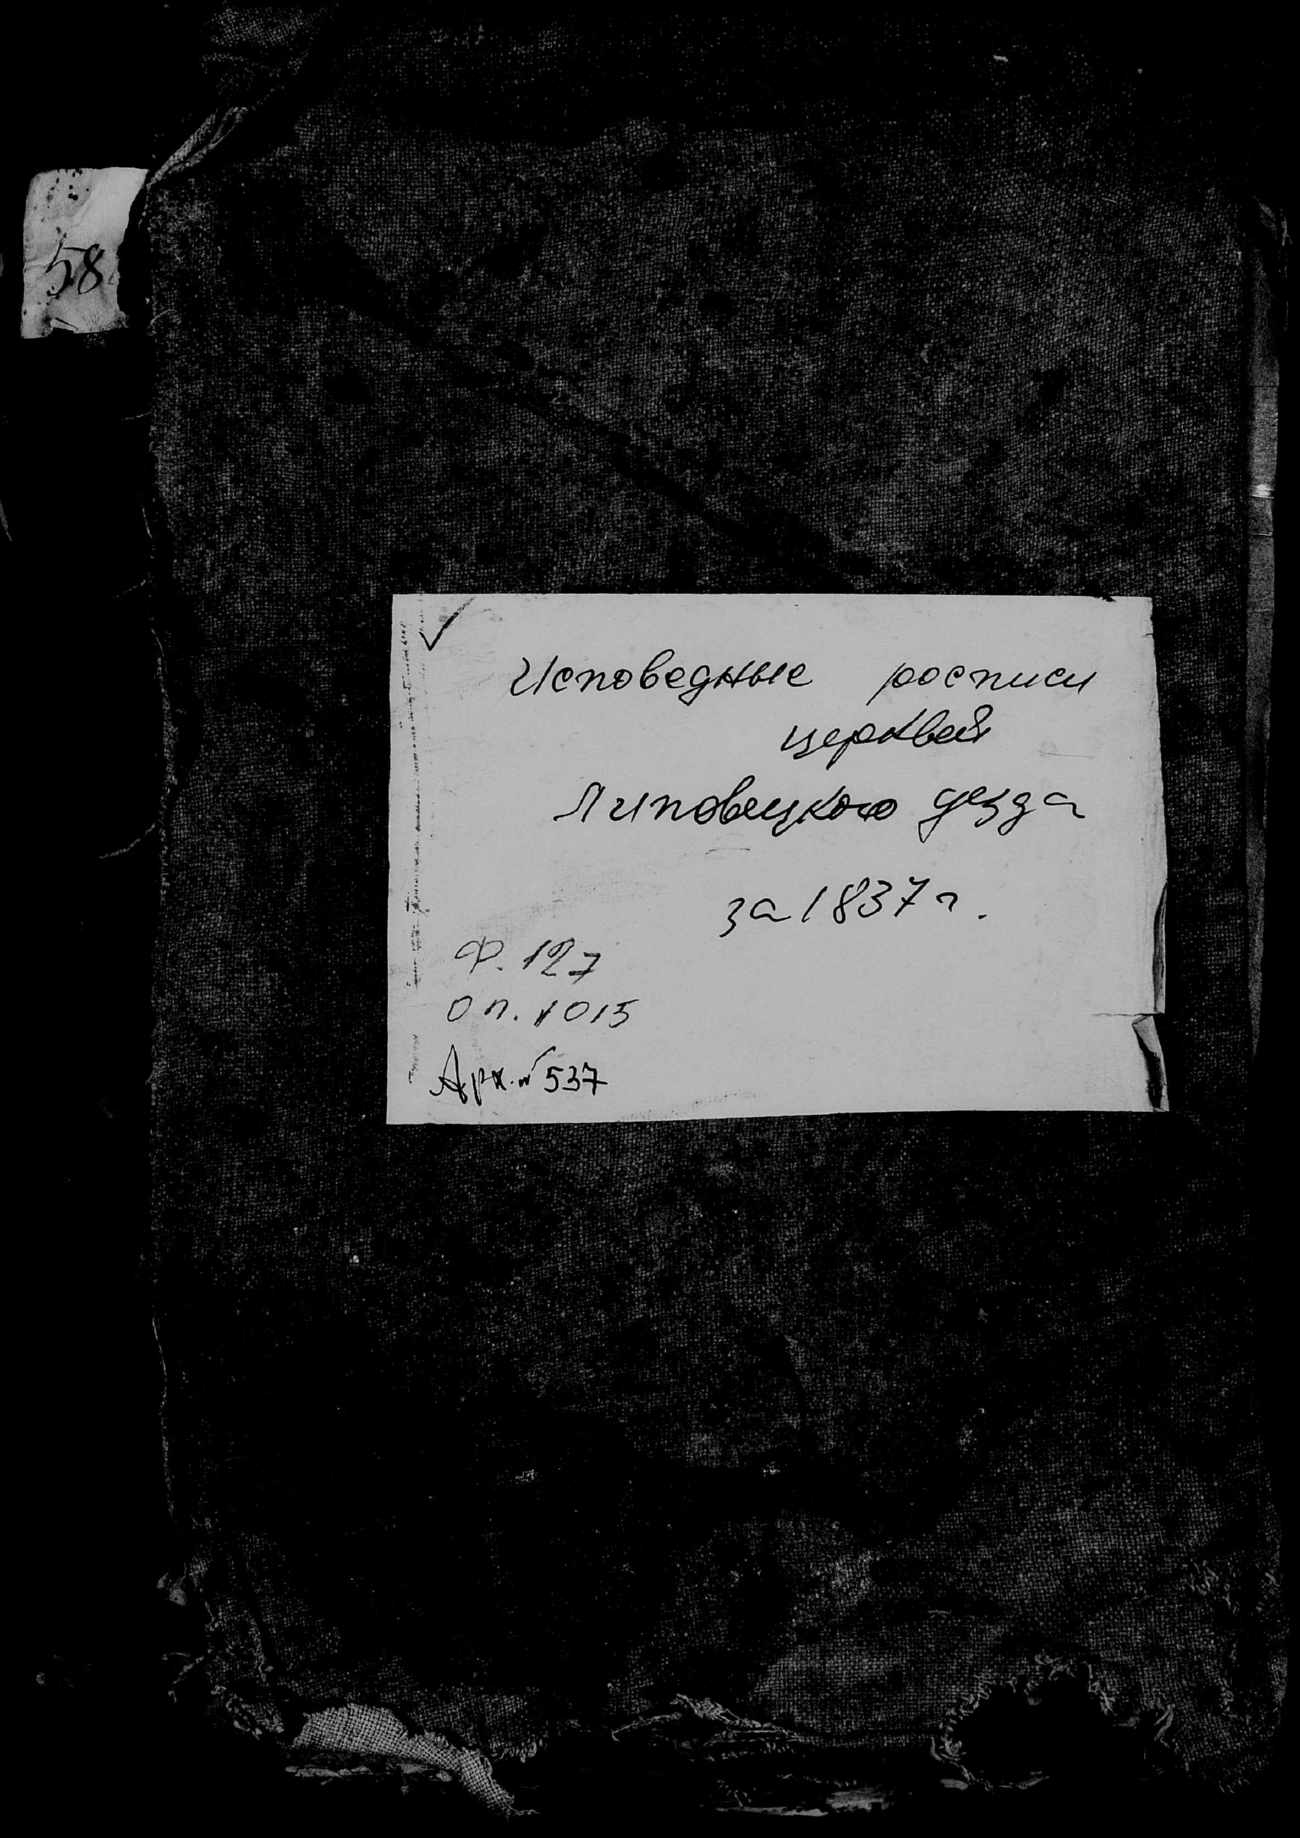 58
Исповедные росписи
церквей
Липовецкого уезда
за 1837 г.
Ф. 127
оп. 1015
Арх. № 537